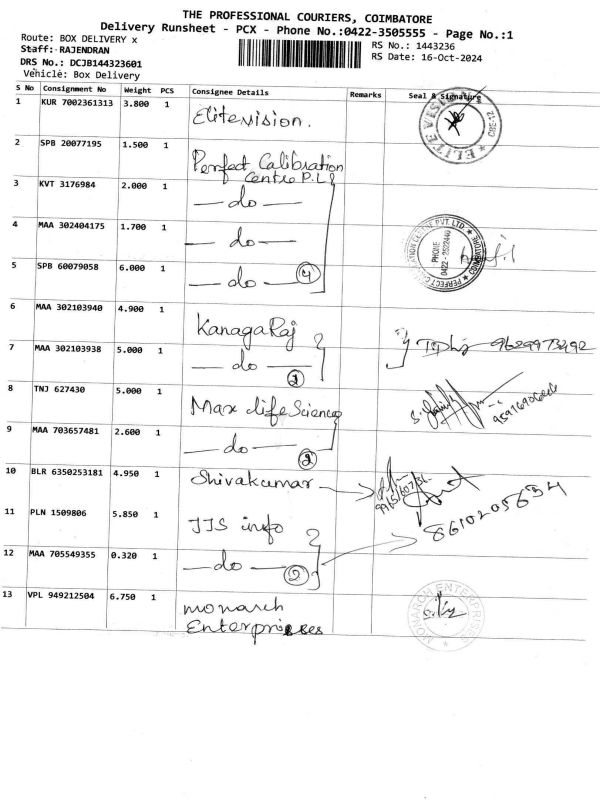 THE PROFESSIONAL COURIERS, COIMBATORE
Delivery Runsheet - PCX - Phone No.:0422-3505555 - Page No.:1
Route: BOX DELIVERY x
Staff: RAJENDRAN
DRS No.: DCJB144323601
Vehicle: Box Delivery
RS No.: 1443236
RS Date: 16-Oct-2024
S No Consignment No Weight PCS Consignee Details Remarks Seal & Signature
1 KUR 7002361313 3.800 1 Elitevision.
ELITE VISION
2 SPB 20077195 1.500 1 Perfect Calibration
Centre P.L
3 KVT 3176984 2.000 1 — do —
4 MAA 302404175 1.700 1 — do —
PERFECT CALIBRATION CENTRE PVT. LTD.
COIMBATORE
PHONE
0422 - 2522440
5 SPB 60079058 6.000 1 — do — 4
6 MAA 302103940 4.900 1 KanagaRaj
7 MAA 302103938 5.000 1 — do — 2
8 TNJ 627430 5.000 1 Max life Science
9 MAA 703657481 2.600 1 — do — 2
10 BLR 6350253181 4.950 1 Shivakumar
11 PLN 1509806 5.850 1 JJS info
8610205634
12 MAA 705549355 0.320 1 — do — 2
13 VPL 949212504 6.750 1 monarch
Enterprises
MONARCH ENTERPRISES